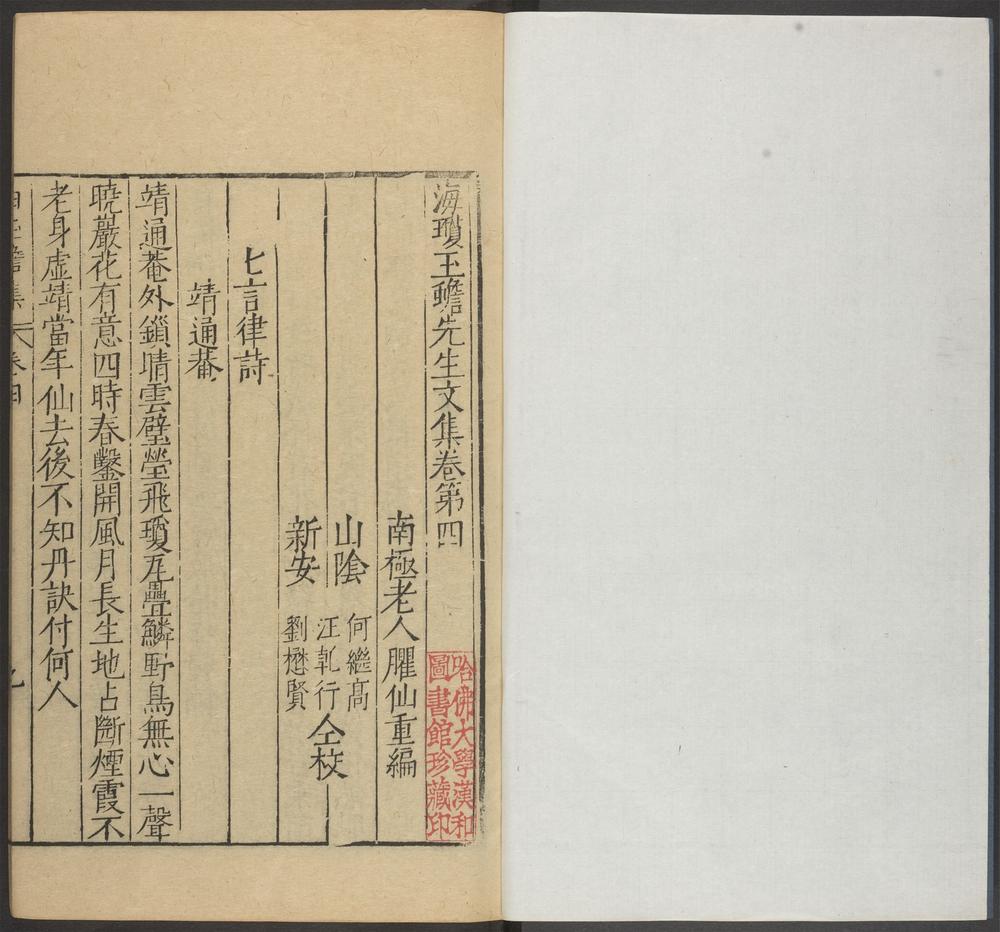 海瓊玉蟾先生文集卷第四
南極老人臞仙重編
山陰 何繼高
汪乹行 仝校
新安 劉懋賢
七言律詩
靖通菴
靖通菴外鎖晴雲璧瑩飛瓊瓦疊鱗野鳥無心一聲
曉巖花有意四時春鑿開風月長生地占斷煙霞不
老身虛靖當年仙去後不知丹訣付何人
哈佛大學漢和
圖書館珍藏印